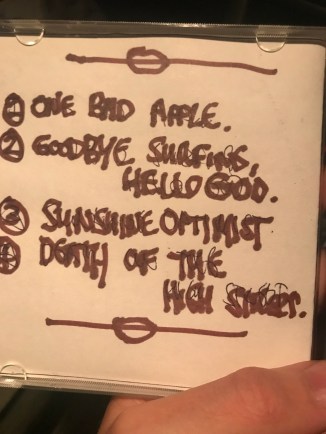 ① ONE BAD APPLE.
② GOODBYE SURFING,
HELLO GOD.
③ SUNSHINE OPTIMIST
④ DEATH OF THE
HIGH STREET.